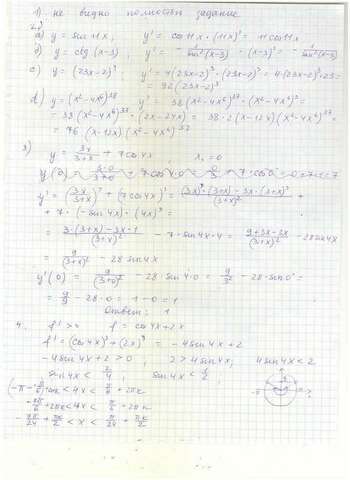 1) не видно полностью задание
2)
a) y = sin 11x, y' = cos 11x · (11x)' = 11 cos 11x
b) y = ctg (x-3), y' = - 1/sin²(x-3) · (x-3)' = - 1/sin²(x-3)
c) y = (23x-2)⁴, y' = 4(23x-2)³ · (23x-2)' = 4(23x-2)³ · 23 =
= 92(23x-2)³
d) y = (x²-4x⁶)³⁸ y' = 38(x²-4x⁶)³⁷ · (x²-4x⁶)' =
= 38(x²-4x⁶)³⁷ · (2x-24x) = 38·2(x-12x)(x²-4x⁶)³⁷ =
= 76(x-12x)(x²-4x⁶)³⁷
3) y = 3x/(3+x) + 7cos 4x, x₀ = 0
y' = (3x/(3+x))' + (7cos 4x)' = ((3x)'·(3+x) - 3x·(3+x)')/(3+x)² +
+ 7·(-sin 4x)·(4x)' =
= (3·(3+x) - 3x·1)/(3+x)² - 7·sin 4x·4 = (9+3x-3x)/(3+x)² - 28 sin 4x
= 9/(3+x)² - 28 sin 4x
y'(0) = 9/(3+0)² - 28·sin 4·0 = 9/3² - 28·sin 0 =
= 9/9 - 28·0 = 1-0 = 1
Ответ: 1
4. f' > 0 f = cos 4x + 2x
f' = (cos 4x)' + (2x)' = -4sin 4x + 2
-4sin 4x + 2 > 0, 2 > 4sin 4x, 4sin 4x < 2
sin 4x < 2/4, sin 4x < 1/2,
-π - π/6 + 2πk < 4x < π/6 + 2πk
-7π/6 + 2πk < 4x < π/6 + 2πk
-7π/24 + πk/2 < x < π/24 + πk/2